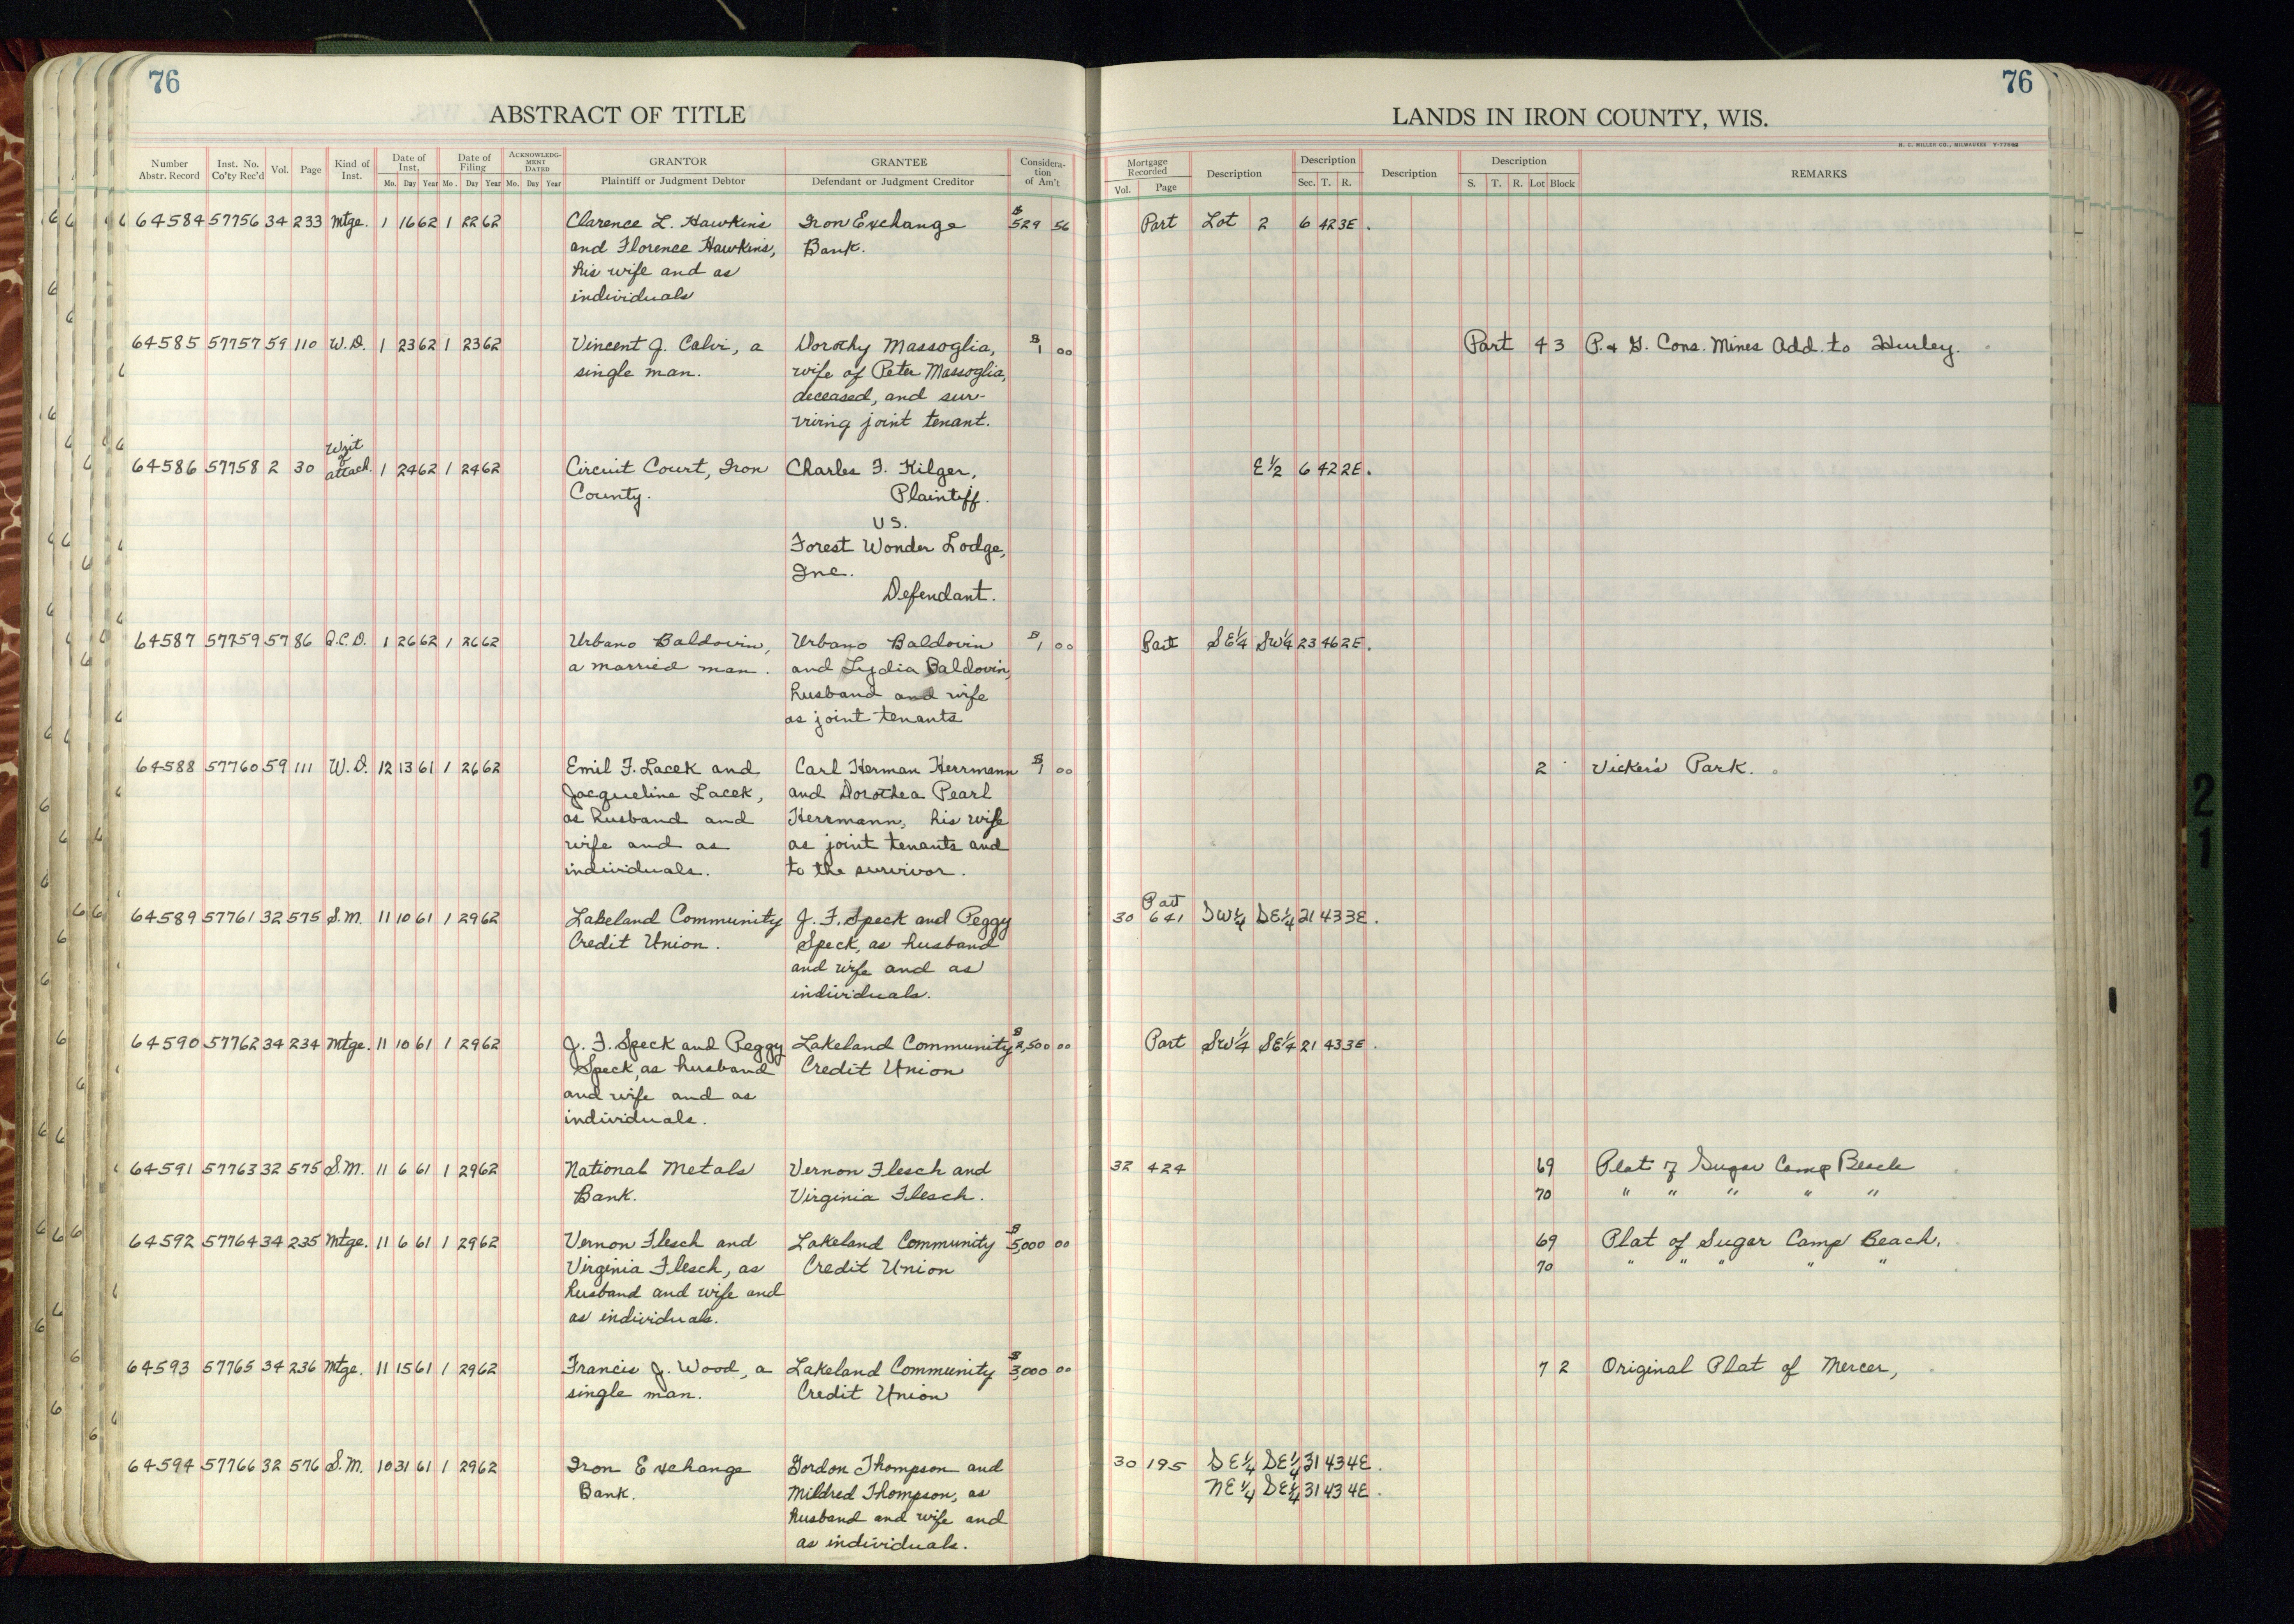 76
76
ABSTRACT OF TITLE
LANDS IN IRON COUNTY, WIS.
H. C. MILLER CO., MILWAUKEE
Number Abstr. Record Inst. No. Co'ty Rec'd Vol. Page Kind of Inst. Date of Inst. Mo. Day Year Date of Filing Mo. Day Year ACKNOWLEDGMENT DATED Mo. Day Year GRANTOR Plaintiff or Judgment Debtor GRANTEE Defendant or Judgment Creditor Considera-tion of Am't
Mortgage Recorded Vol. Page Description Description Sec. T. R. Description Description S. T. R. Lot Block REMARKS
64584 57756 34 233 Mtge. 1 16 62 1 22 62 Clarence L. Hawkins Iron Exchange $529 56 Part Lot 2 6 42 3E.
and Florence Hawkins, Bank.
his wife and as
individuals
64585 57757 59 110 W.D. 1 23 62 1 23 62 Vincent J. Calvi, a Dorothy Massoglia, $1 00 Part 4 3 P. & G. Cons. Mines Add. to Hurley.
single man. wife of Peter Massoglia,
deceased, and sur-
viving joint tenant.
Writ
of
64586 57758 2 30 attach. 1 24 62 1 24 62 Circuit Court, Iron Charles F. Kilger, E½ 6 42 2E.
County. Plaintiff.
vs.
Forest Wonder Lodge,
Inc.
Defendant.
64587 57759 57 86 Q.C.D. 1 26 62 1 26 62 Urbano Baldovin, Urbano Baldovin $1 00 Part SE¼ SW¼ 23 46 2E.
a married man. and Lydia Baldovin,
husband and wife
as joint tenants
64588 57760 59 111 W.D. 12 13 61 1 26 62 Emil F. Lacek and Carl Herman Herrmann $1 00 2 Vicker's Park.
Jacqueline Lacek, and Dorothea Pearl
as husband and Herrmann, his wife
wife and as as joint tenants and
individuals. to the survivor.
Part
64589 57761 32 575 S.M. 11 10 61 1 29 62 Lakeland Community J. F. Speck and Peggy 30 641 SW¼ SE¼ 21 43 3E.
Credit Union. Speck, as husband
and wife and as
individuals.
64590 57762 34 234 Mtge. 11 10 61 1 29 62 J. F. Speck and Peggy Lakeland Community $2,500 00 Part SW¼ SE¼ 21 43 3E.
Speck, as husband Credit Union
and wife and as
individuals.
64591 57763 32 575 S.M. 11 6 61 1 29 62 National Metals Vernon Flesch and 32 424 69 Plat of Sugar Camp Beach
Bank. Virginia Flesch. 70 " " " " "
64592 57764 34 235 Mtge. 11 6 61 1 29 62 Vernon Flesch and Lakeland Community $5,000 00 69 Plat of Sugar Camp Beach.
Virginia Flesch, as Credit Union 70 " " " " "
husband and wife and
as individuals.
64593 57765 34 236 Mtge. 11 15 61 1 29 62 Francis J. Wood, a Lakeland Community $3,000 00 7 2 Original Plat of Mercer,
single man. Credit Union
64594 57766 32 576 S.M. 10 31 61 1 29 62 Iron Exchange Gordon Thompson and 30 195 SE¼ SE¼ 31 43 4E.
Bank. Mildred Thompson, as NE¼ SE¼ 31 43 4E.
husband and wife and
as individuals.
21